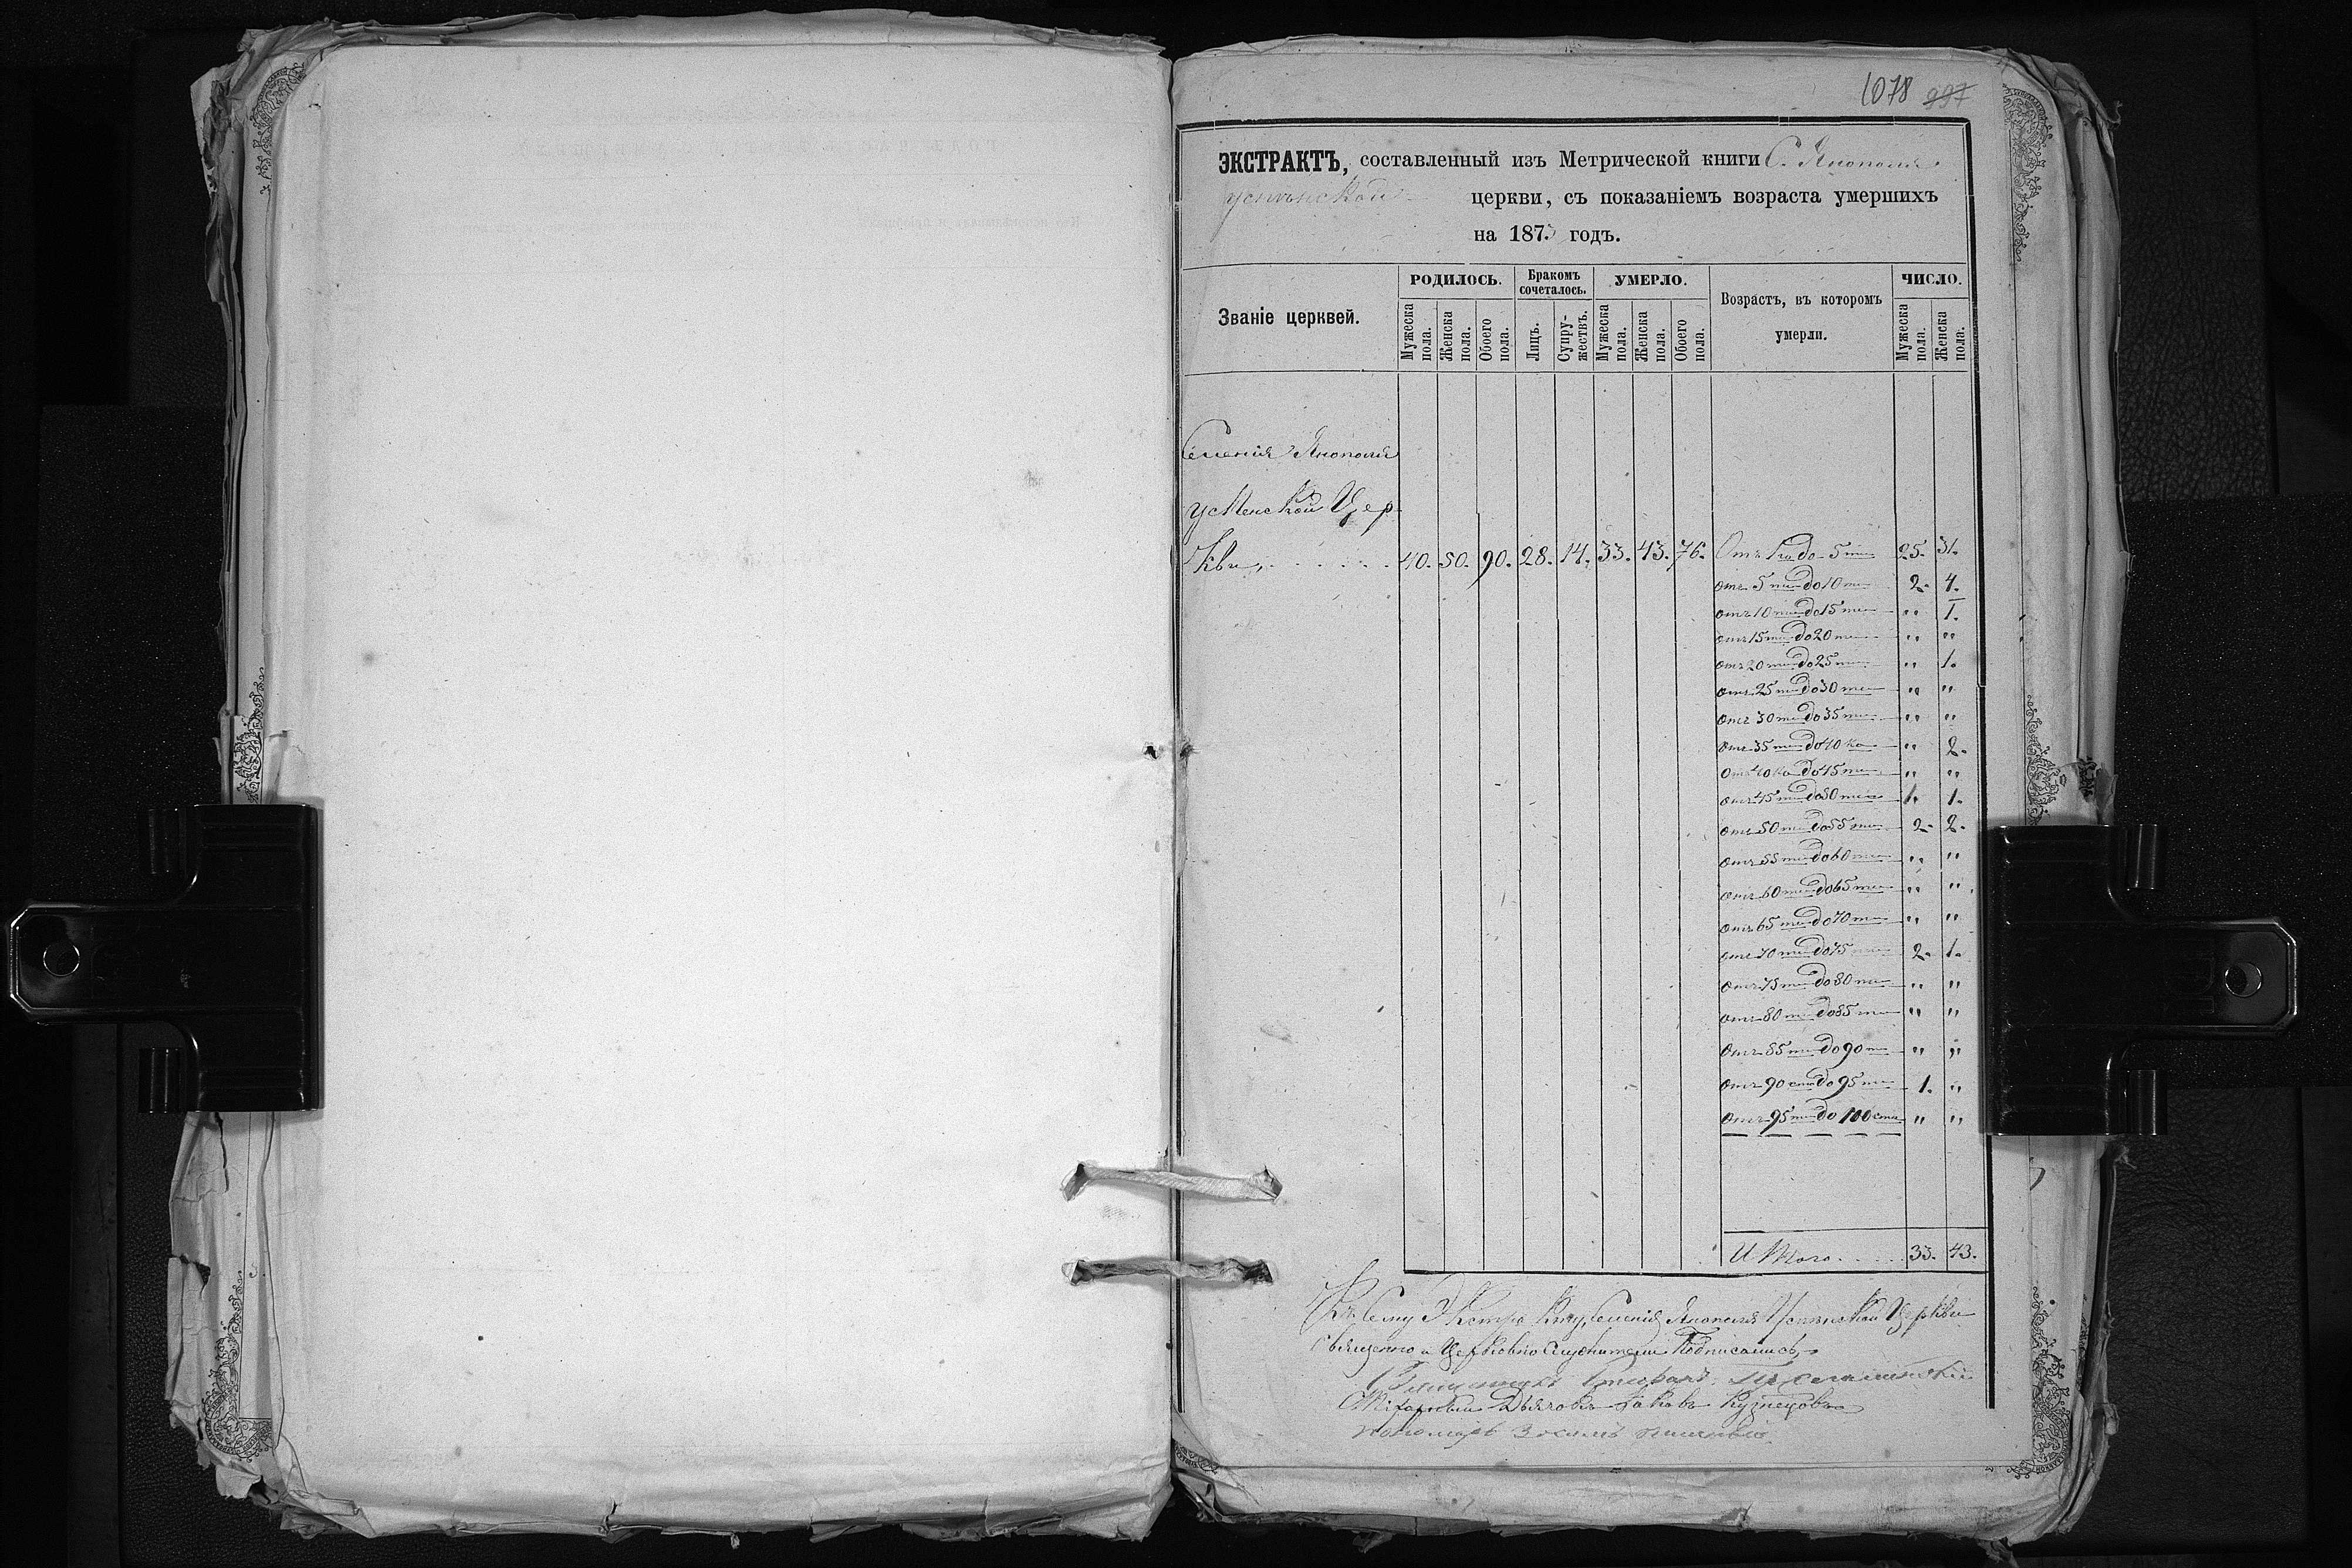 1078 997
ЭКСТРАКТЪ, составленный изъ Метрической книги С. Янополя
Успѣнской церкви, съ показаніемъ возраста умершихъ
на 1873 годъ.
Званіе церквей.
РОДИЛОСЬ.
Мужеска пола.
Женска пола.
Обоего пола.
Бракомъ сочеталось.
Лицъ.
Супружествъ.
УМЕРЛО.
Мужеска пола.
Женска пола.
Обоего пола.
Возрастъ, въ которомъ
умерли.
ЧИСЛО.
Мужеска пола.
Женска пола.
Селенія Янополя
Успенской Цер
кви, 40. 50. 90. 28. 14. 33. 43. 76. Отъ 1го до 5ти 25. 31.
отъ 5ти до 10ти 2. 4.
отъ 10ти до 15ти " 1.
отъ 15ти до 20ти " "
отъ 20ти до 25ти " 1.
отъ 25ти до 30ти " "
отъ 30ти до 35ти " "
отъ 35ти до 40ка " 2.
отъ 40ка до 45ти " "
отъ 45ти до 50ти 1. 1.
отъ 50ти до 55ти 2. 2.
отъ 55ти до 60ти " "
отъ 60ти до 65ти " "
отъ 65ти до 70ти " "
отъ 70ти до 75ти 2. 1.
отъ 75ти до 80ти " "
отъ 80ти до 85ти " "
отъ 85ти до 90ти " "
отъ 90сто до 95ти 1. "
отъ 95ти до 100ста " "
Итого 33. 43.
Къ сему Экстракту, селенія Янополя Успѣнской Церкви
Священно и Церковно Служители Подписались,
Священникъ Стефанъ
Дьячокъ Іаковъ Кузнецовъ
пономарь